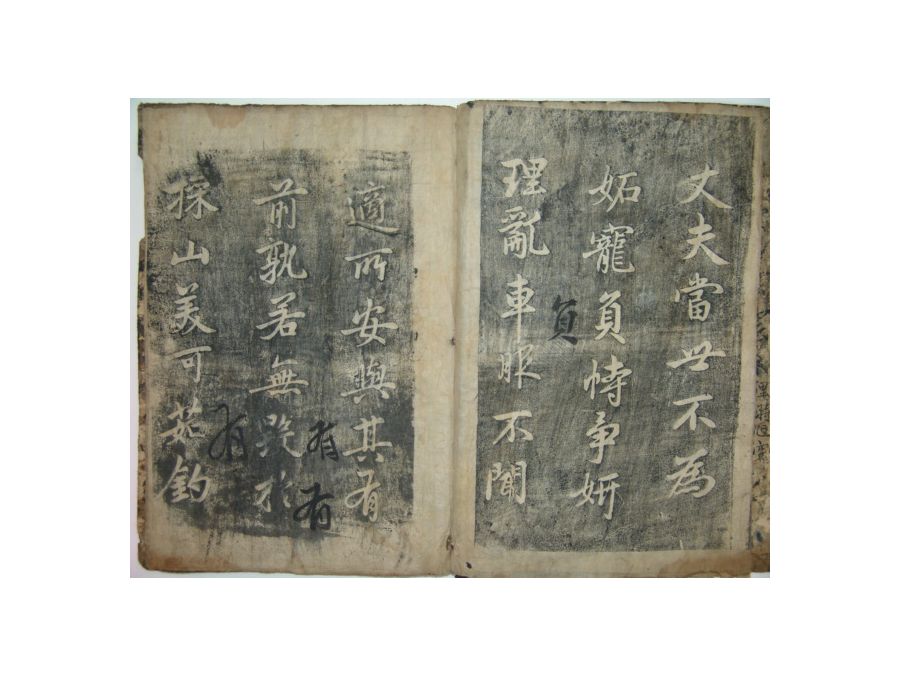 丈夫當世不為
妬寵負恃争妍
負
理亂車服不聞
適所安與其有
有
有
前孰若無毀於
有
採山美可茹釣